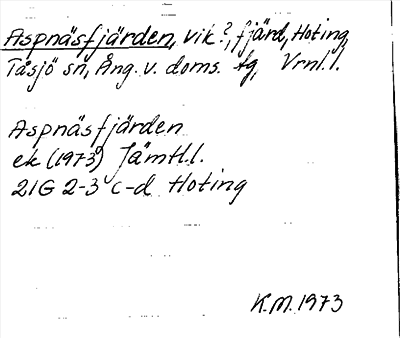 Aspnäsfjärden, vik?, fjärd, Hoting,
Tåsjö sn, Ång. v. doms. tg, Vrnl. l.
Aspnäsfjärden
ek (1973) Jämtl.l.
21G 2-3 c-d Hoting
K.M. 1973